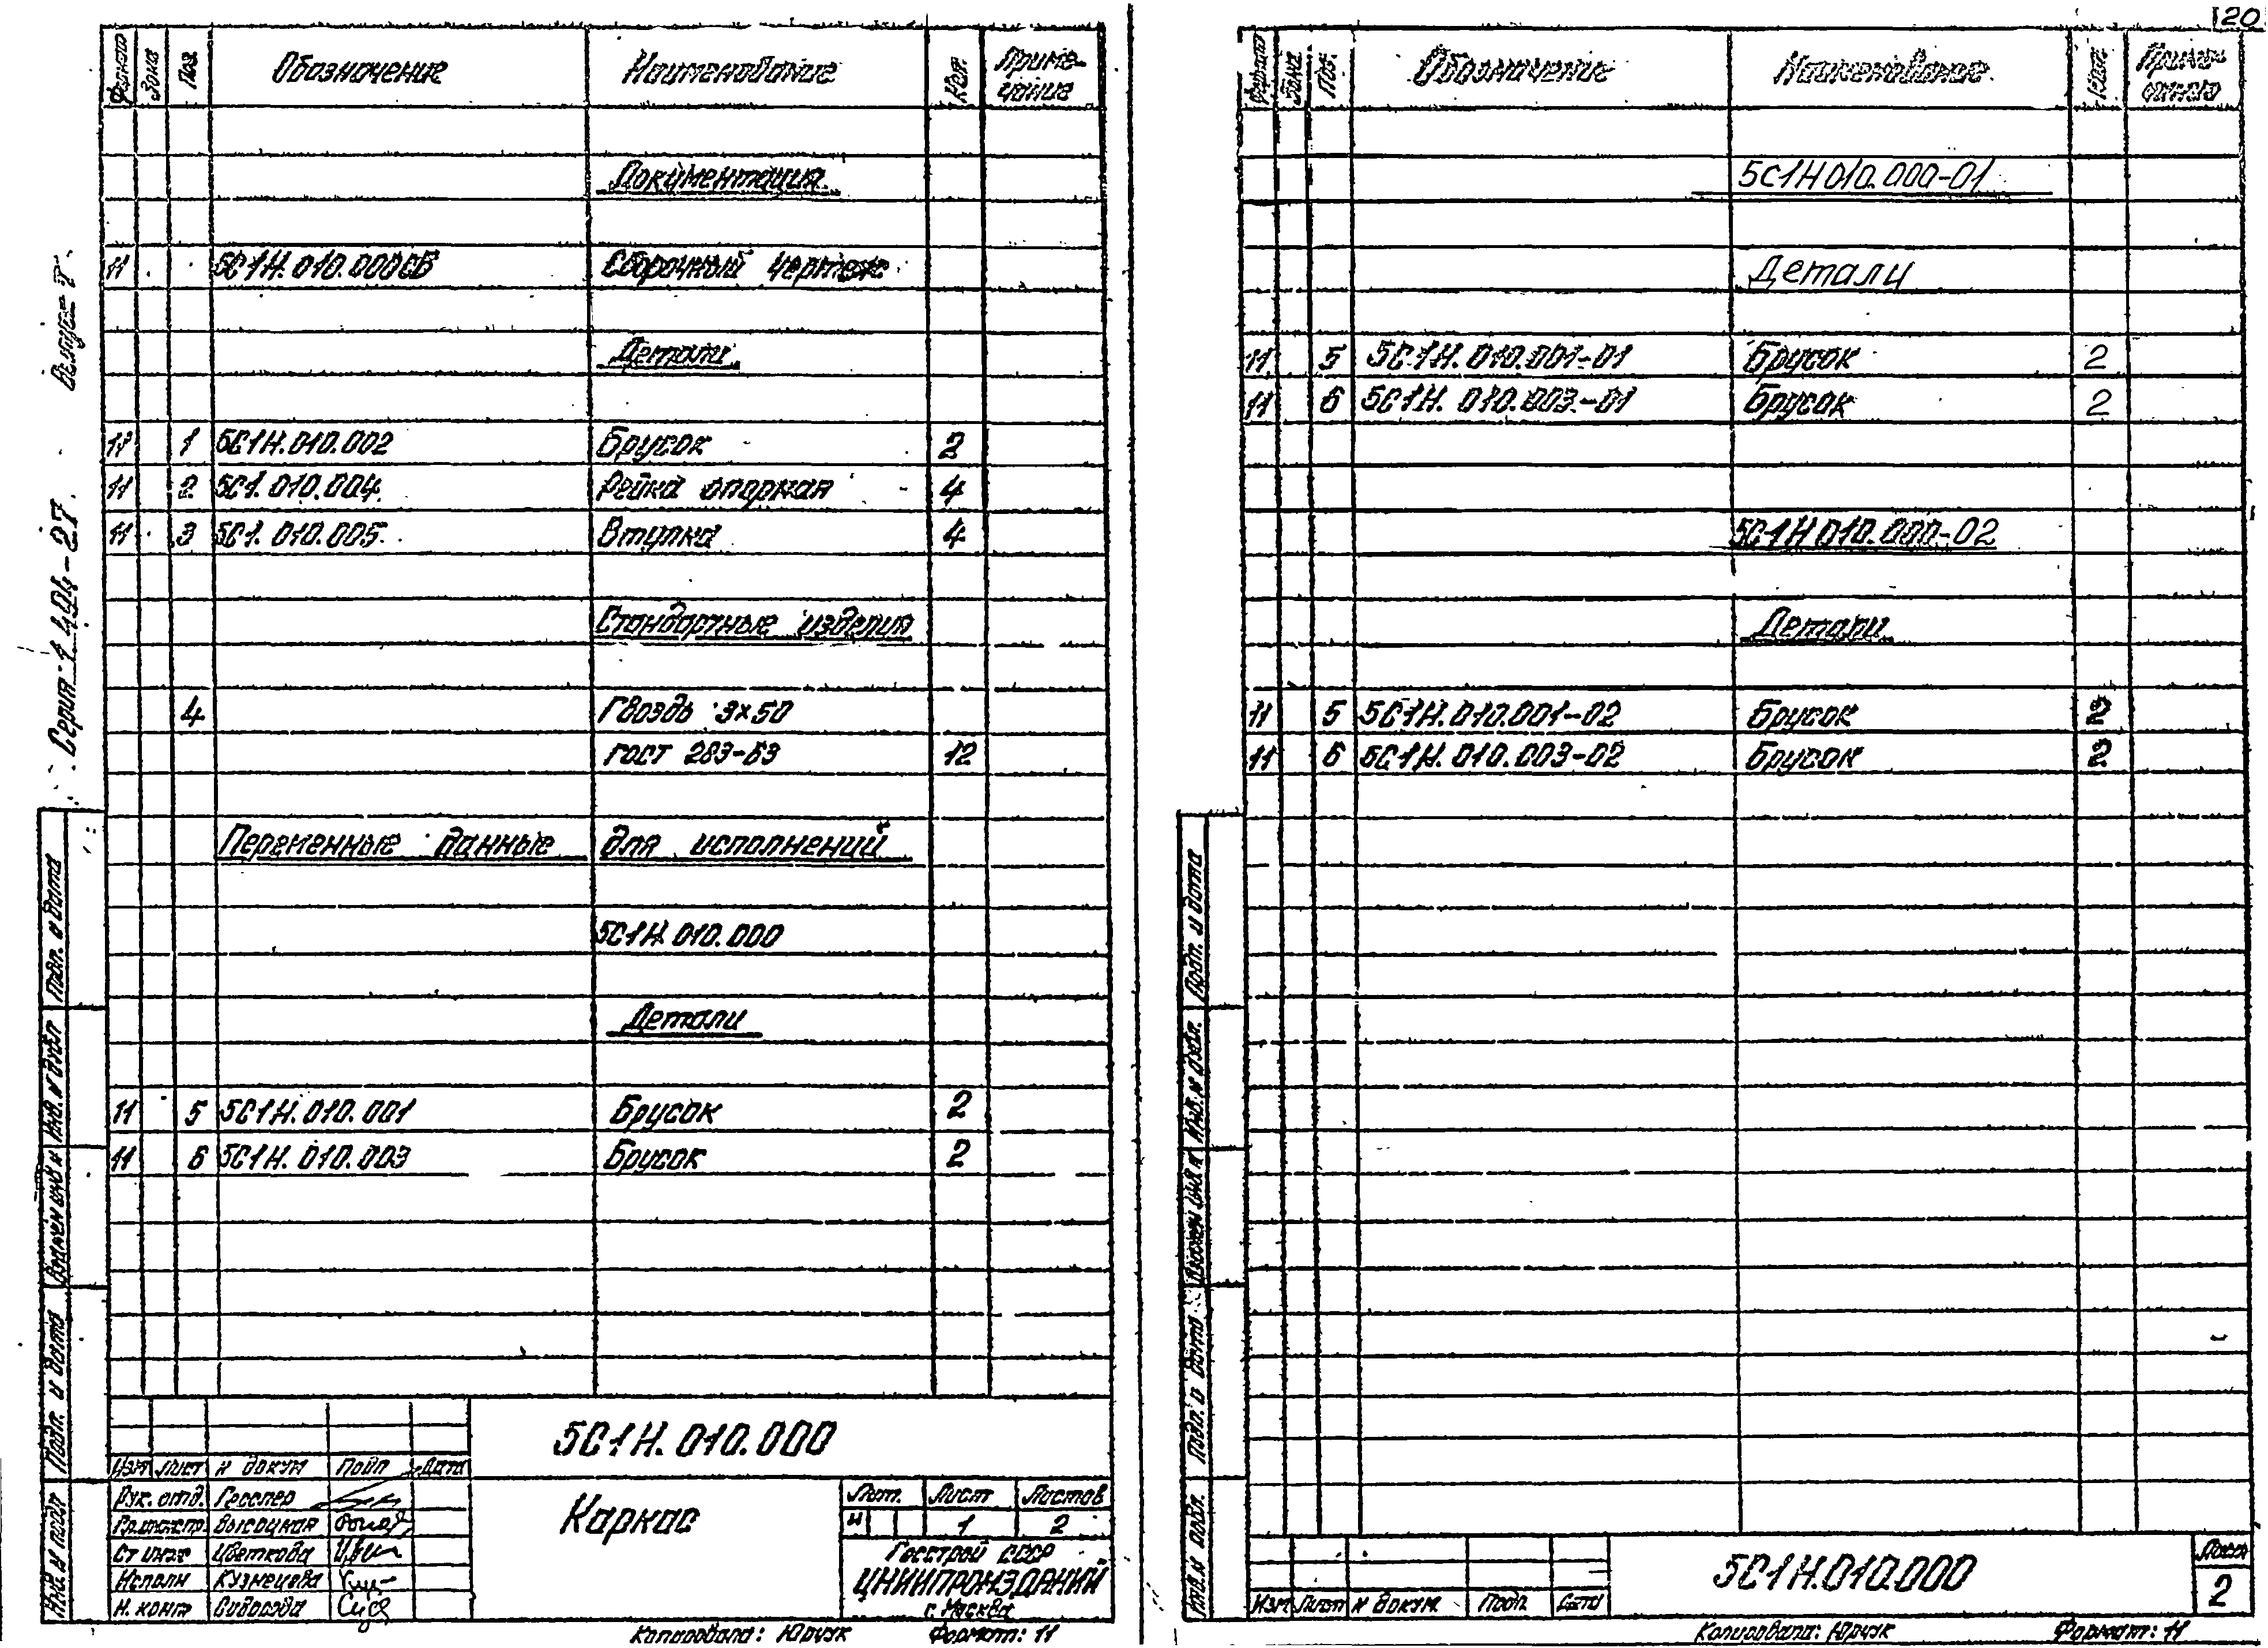 120
Формат Зона Поз. Обозначение Наименование Кол. Приме-
чание
Документация
11 5С1Н.010.000СБ Сборочный чертеж
Детали
11 1 5С1Н.010.002 Брусок 2
11 2 5С1.010.004 Рейка опорная 4
11 3 5С1.010.005 Втулка 4
Стандартные изделия
4 Гвоздь 3×50
ГОСТ 283-63 12
Переменные данные для исполнений
5С1Н.010.000
Детали
11 5 5С1Н.010.001 Брусок 2
11 6 5С1Н.010.003 Брусок 2
Серия 1.404-27. Выпуск
Подп. и дата
Инв. № дубл
Взамен инв №
Подп. и дата
Инв № подл
5С1Н.010.000
Изм Лист № докум Подп Дата
Рук. отд. Гесслер
Высоцкая
Ст инж Цветкова
Исполн Кузнецова
Н. конт
Каркас
Лит. Лист Листов
И 1 2
Госстрой СССР
ЦНИИПРОМЗДАНИЙ
г. Москва
Копировала: Юрчук Формат: 11
Формат Зона Поз. Обозначение Наименование Кол. Приме-
чание
5С1Н010.000-01
Детали
11 5 5С1Н.010.001-01 Брусок 2
11 6 5С1Н.010.003-01 Брусок 2
5С1Н010.000-02
Детали
11 5 5С1Н.010.001-02 Брусок 2
11 6 5С1Н.010.003-02 Брусок 2
Подп. и дата
Инв. № дубл.
Взамен инв №
Подп. и дата
Инв. № подл.
Изм Лист № докум. Подп. Дата
5С1Н.010.000
Лист
2
Копировала: Юрчук Формат: 11